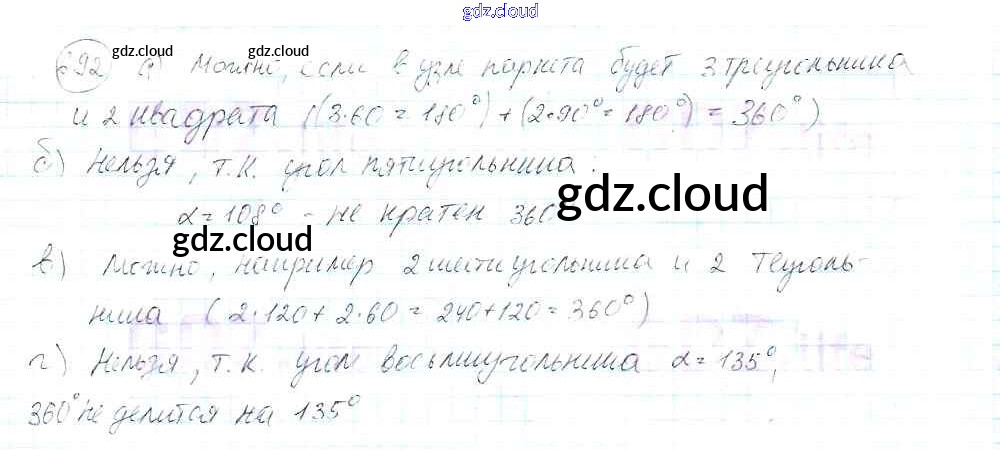 gdz.cloud
692 а) Можно, если в узле паркета будет 3 треугольника
gdz.cloud gdz.cloud
и 2 квадрата ((3·60=180°)+(2·90°=180°)=360°)
б) Нельзя, т.к. угол пятиугольника:
α=108° - не кратен 360
gdz.cloud
gdz.cloud
в) Можно, например 2 шестиугольника и 2 теуголь-
ника (2·120+2·60=240+120=360°)
г) Нельзя, т.к. угол восьмиугольника α=135°,
360° не делится на 135°